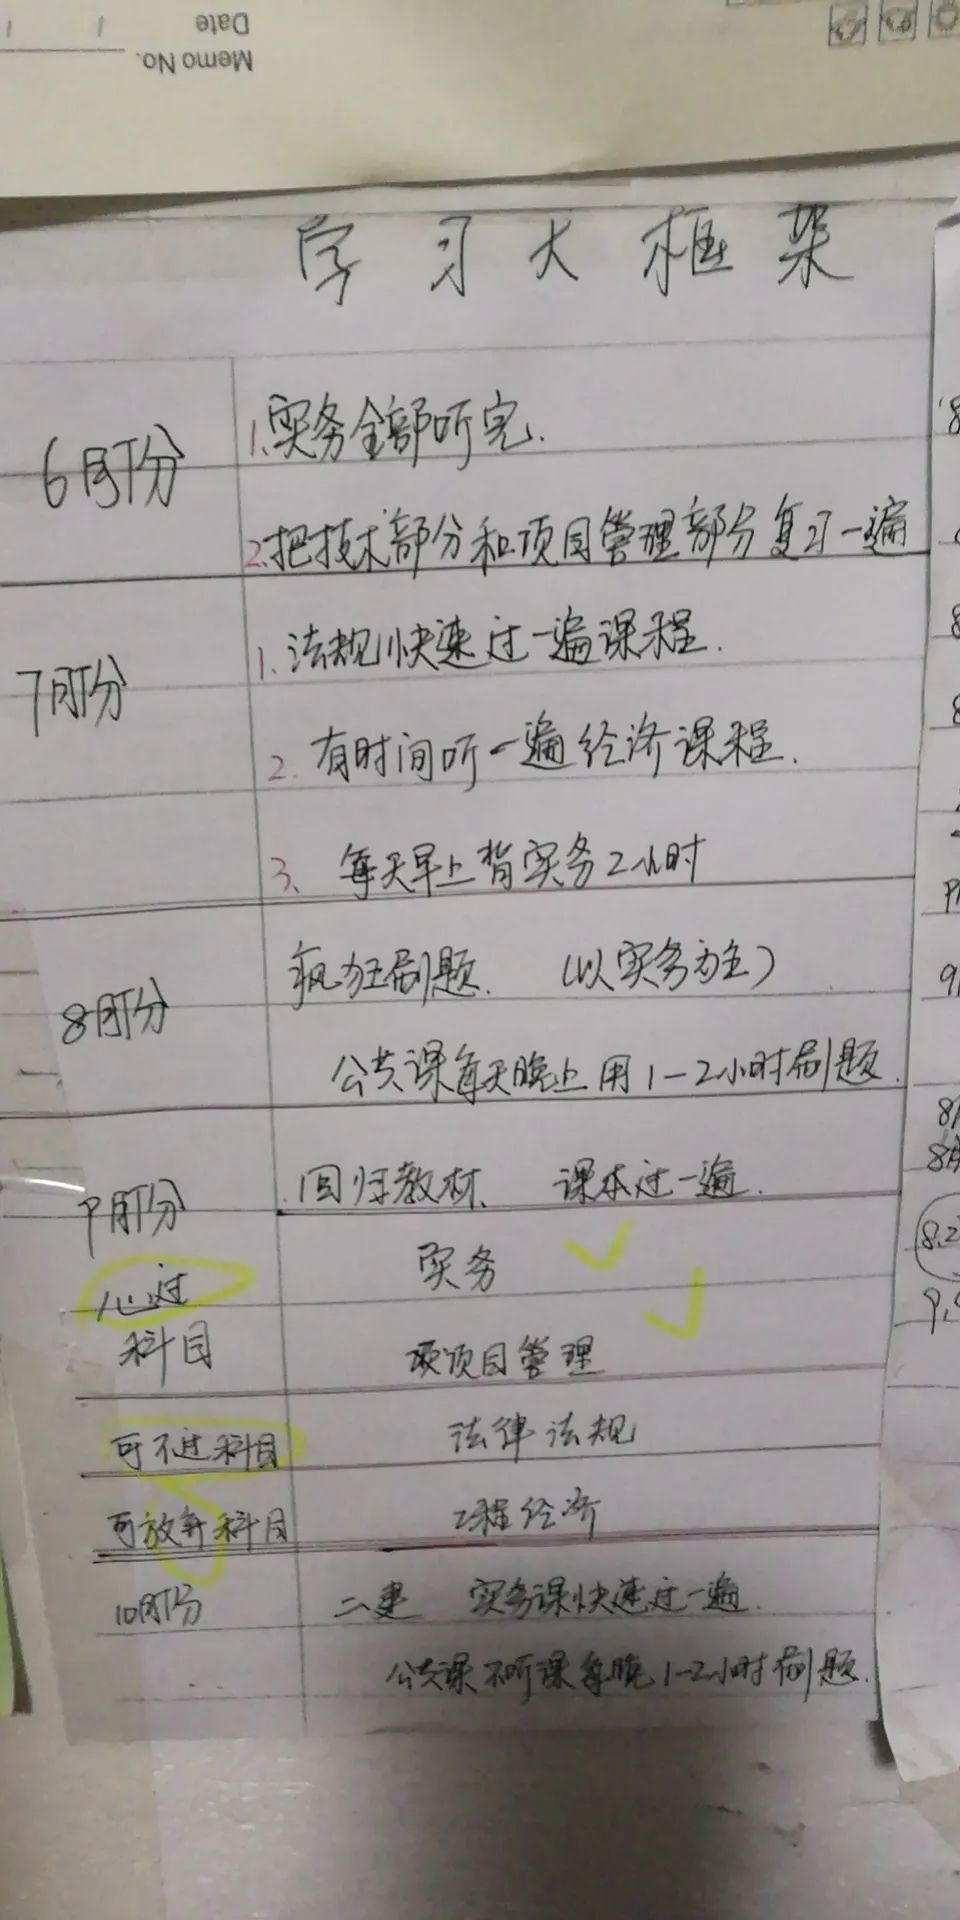 Memo No.
Date
学习大框架
6月份
1.实务全部听完.
2.把技术部分和项目管理部分复习一遍
7月份
1.法规快速过一遍课程.
2.有时间听一遍经济课程.
3、每天早上背实务2小时
8月份
疯狂刷题、(以实务为主)
公共课每天晚上用1-2小时刷题.
9月份
回归教材、课本过一遍.
必过科目
实务
项目管理
可不过科目 法律法规
可放弃科目 工程经济
10月份 二建 实务课快速过一遍.
公共课不听课每晚1-2小时刷题.